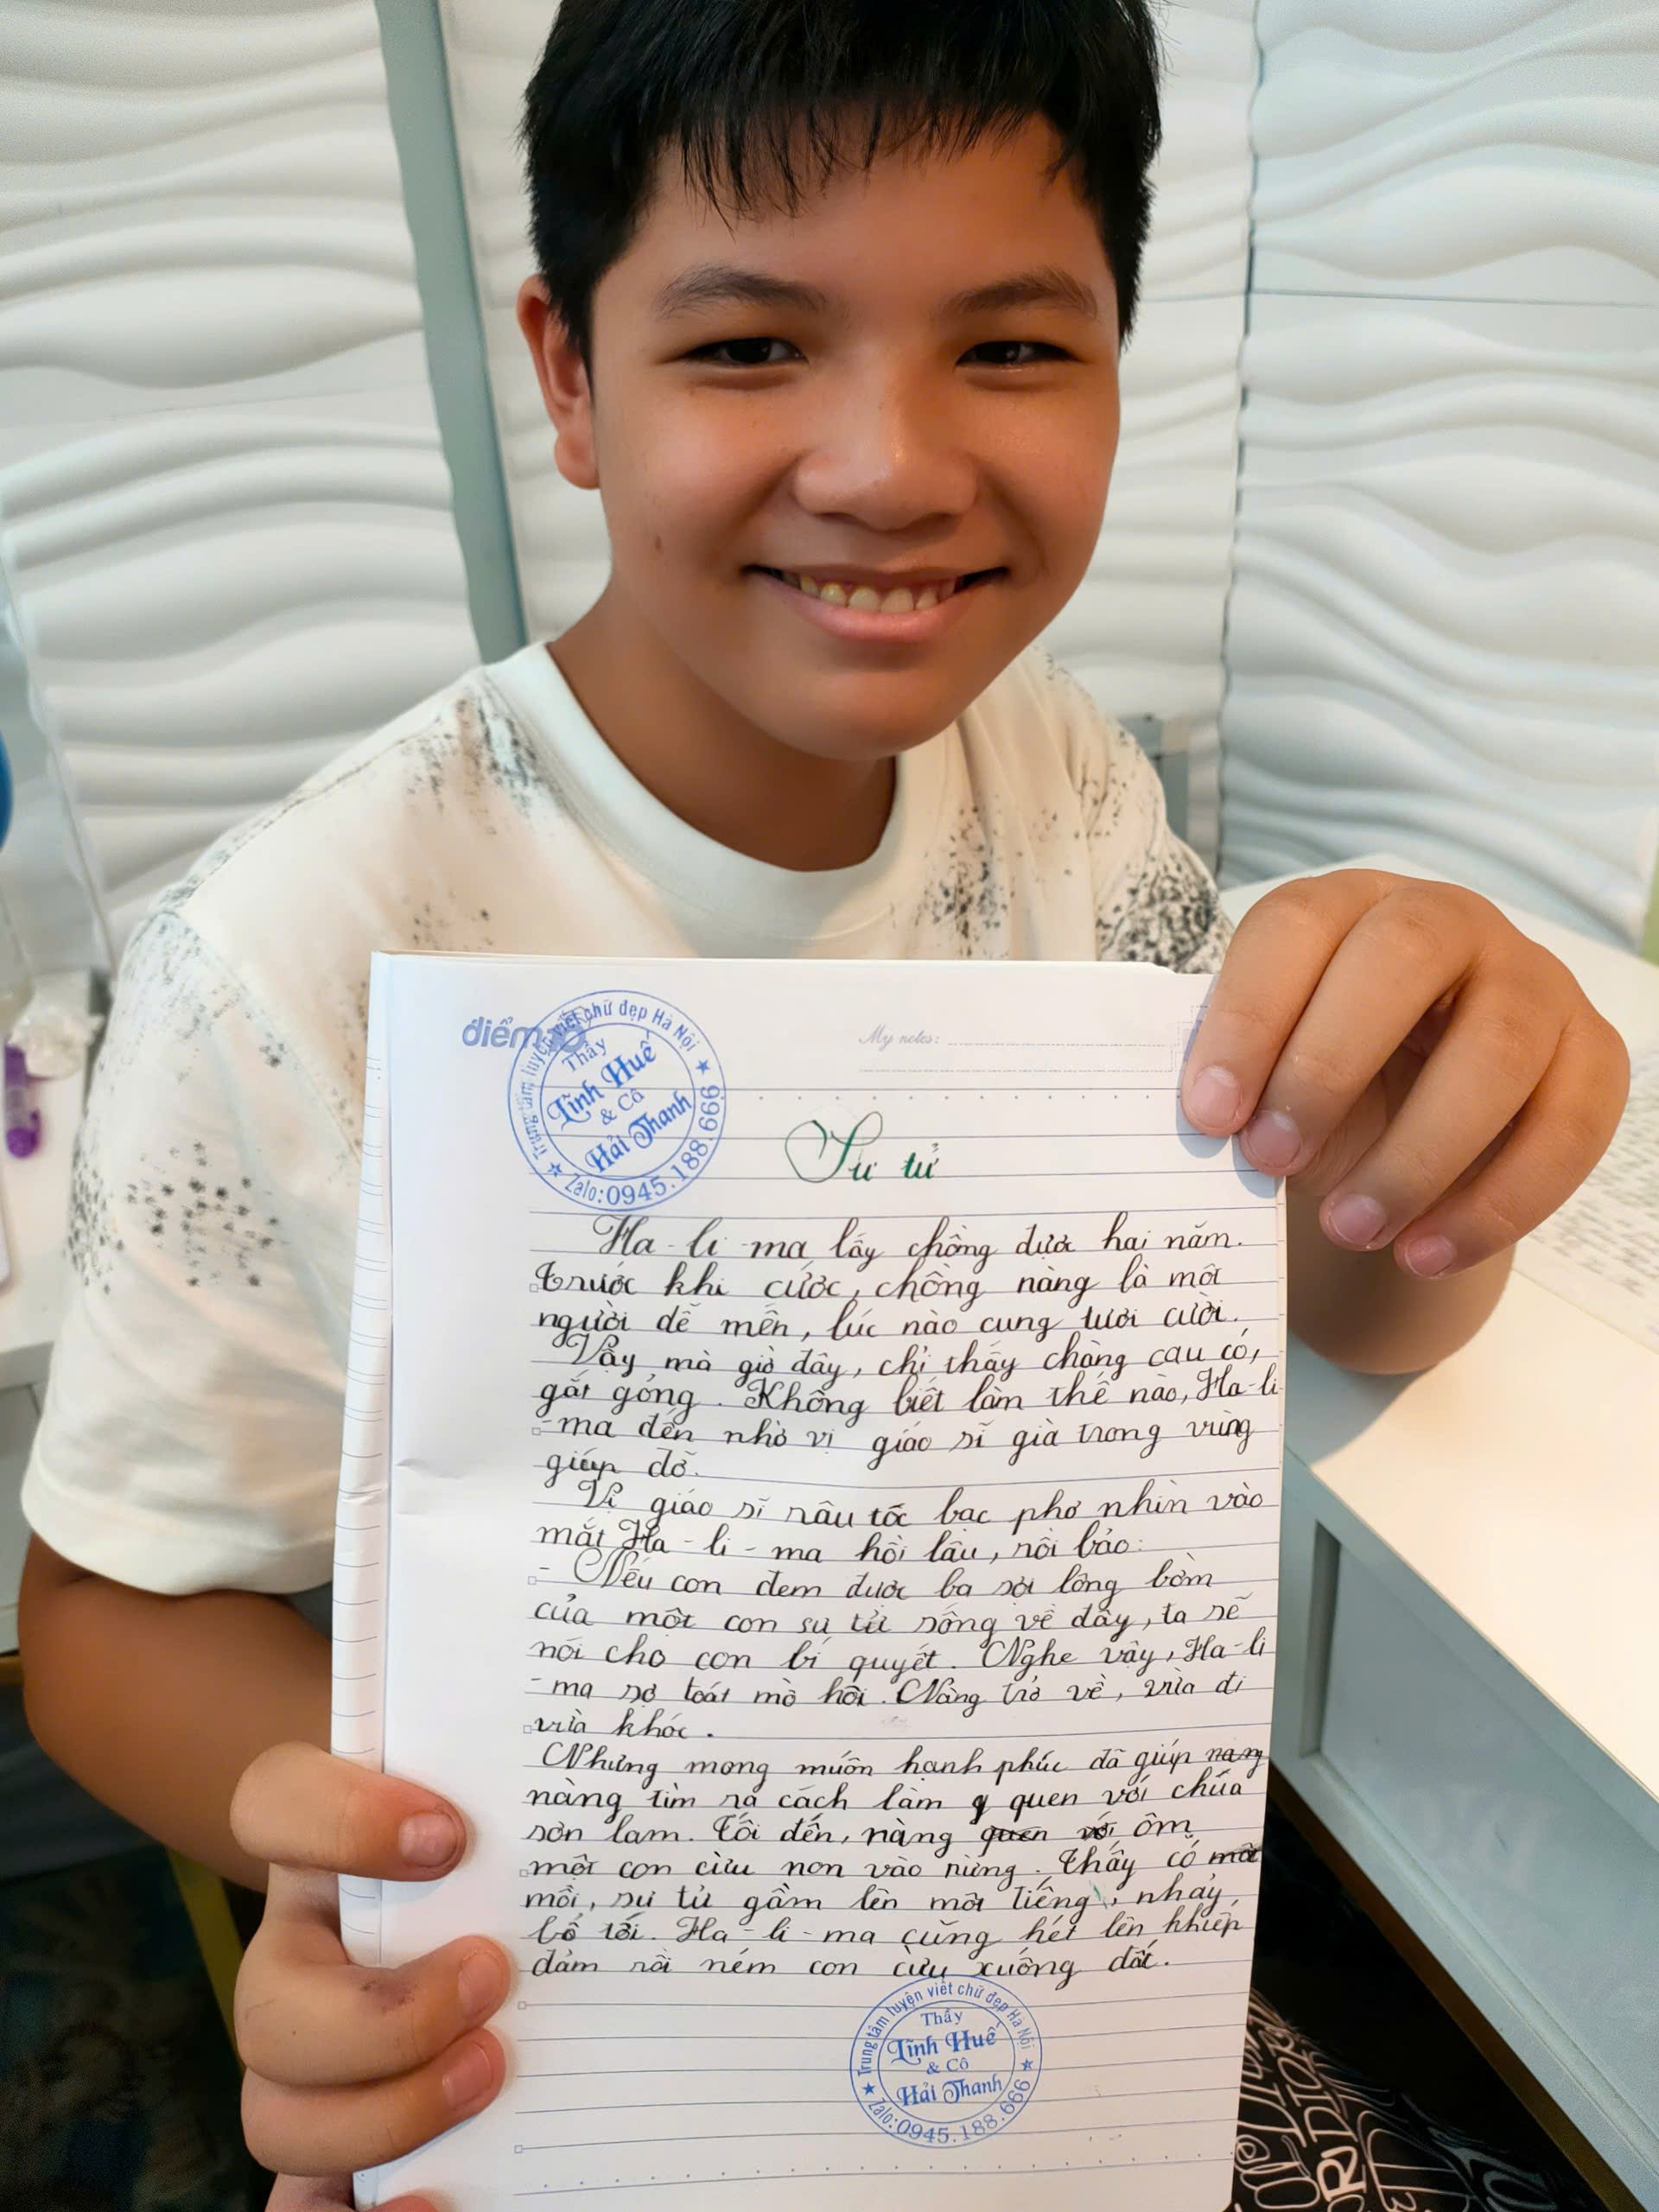 điểm 10
My notes:
Trung tâm luyện viết chữ đẹp Hà Nội
Thầy
Lĩnh Huế
& Cô
Hải Thanh
Zalo: 0945.188.666
Sư tử
Ha - li - ma lấy chồng được hai năm.
Trước khi cưới, chồng nàng là một
người dễ mến, lúc nào cung tươi cười.
Vậy mà giờ đây, chỉ thấy chàng cau có,
gắt gỏng. Không biết làm thế nào, Ha-li
-ma đến nhờ vị giáo sĩ già trong vùng
giúp đỡ.
Vị giáo sĩ râu tóc bạc phơ nhìn vào
mắt Ha - li - ma hồi lâu, rồi bảo:
- Nếu con đem được ba sợi lông bờm
của một con sư tử sống về đây, ta sẽ
nói cho con bí quyết. Nghe vậy, Ha-li
-ma sợ toát mồ hôi. Nàng trở về, vừa đi
vừa khóc.
Nhưng mong muốn hạnh phúc đã giúp nang
nàng tìm ra cách làm q quen với chúa
sơn lam. Tối đến, nàng quen với ôm
một con cừu non vào rừng. Thấy có mồi
mồi, sư tử gầm lên một tiếng, nhảy
bổ tới. Ha - li - ma cũng hét lên khiếp
đảm rồi ném con cừu xuống đất.
Trung tâm luyện viết chữ đẹp Hà Nội
Thầy
Lĩnh Huế
& Cô
Hải Thanh
Zalo: 0945.188.666